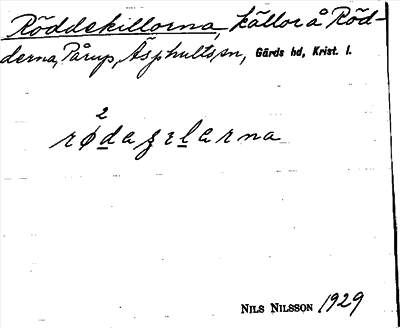 Röddekillorna, källor å Röd-
derna, Pårup, Äsphults sn, Gärds hd, Krist. l.
2
rødaʒɛlarna
NILS NILSSON 1929